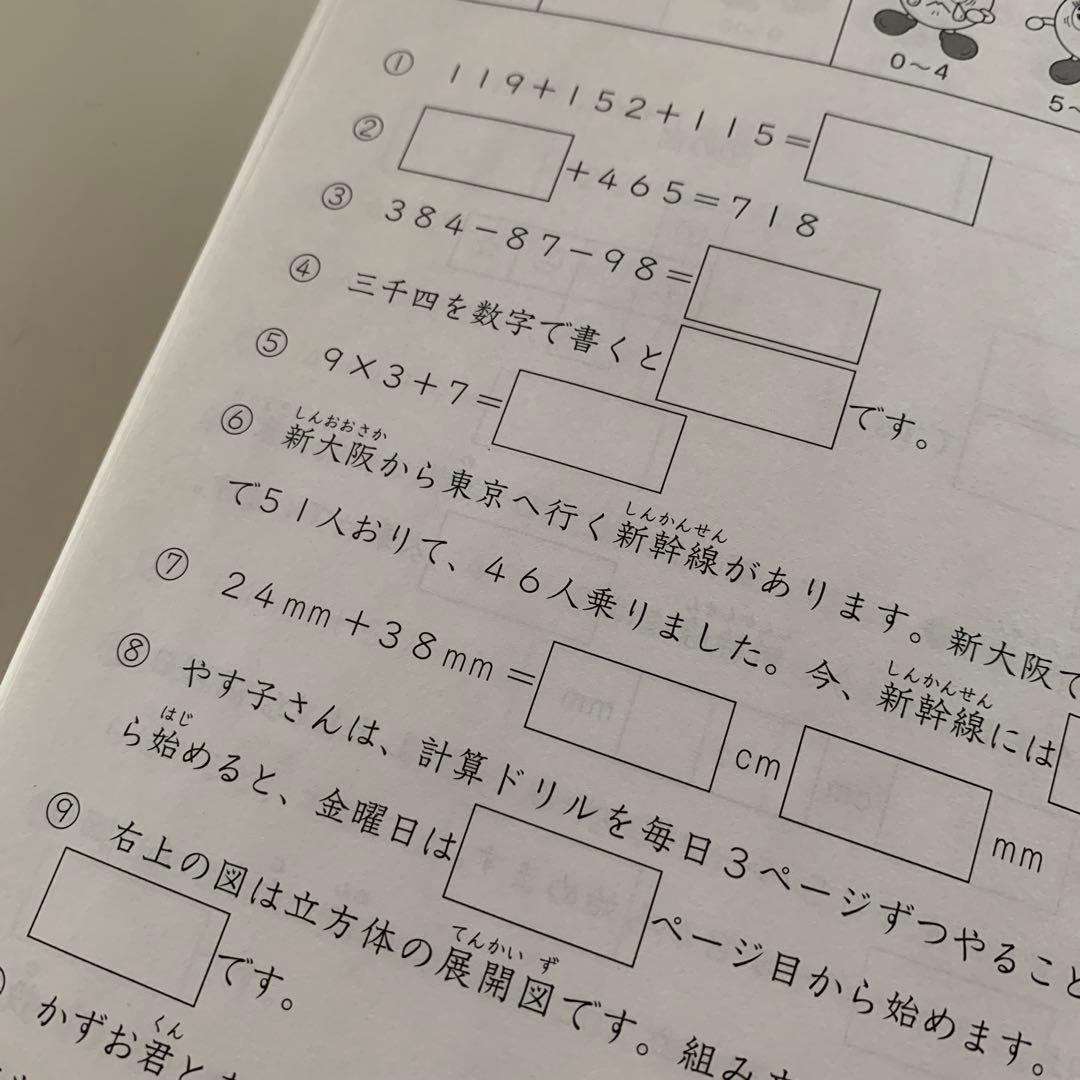 0〜4
5〜
① 119+152+115=
② +465=718
③ 384-87-98=
④ 三千四を数字で書くと です。
⑤ 9×3+7=
しんおおさか しんかんせん
⑥ 新大阪から東京へ行く新幹線があります。新大阪で
しんかんせん
で51人おりて、46人乗りました。今、新幹線には
⑦ 24mm+38mm= cm mm
⑧ やす子さんは、計算ドリルを毎日3ページずつやること
はじ
ら始めると、金曜日は ページ目から始めます。
てんかい ず
⑨ 右上の図は立方体の展開図です。組み
です。
くん
かずお君と